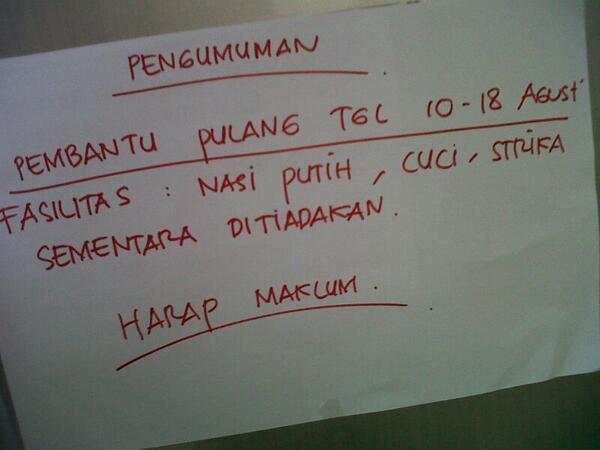 PENGUMUMAN.
PEMBANTU PULANG TGL 10-18 AGUST'
FASILITAS : NASI PUTIH, CUCI, STRIKA
SEMENTARA DITIADAKAN.
HARAP MAKLUM.